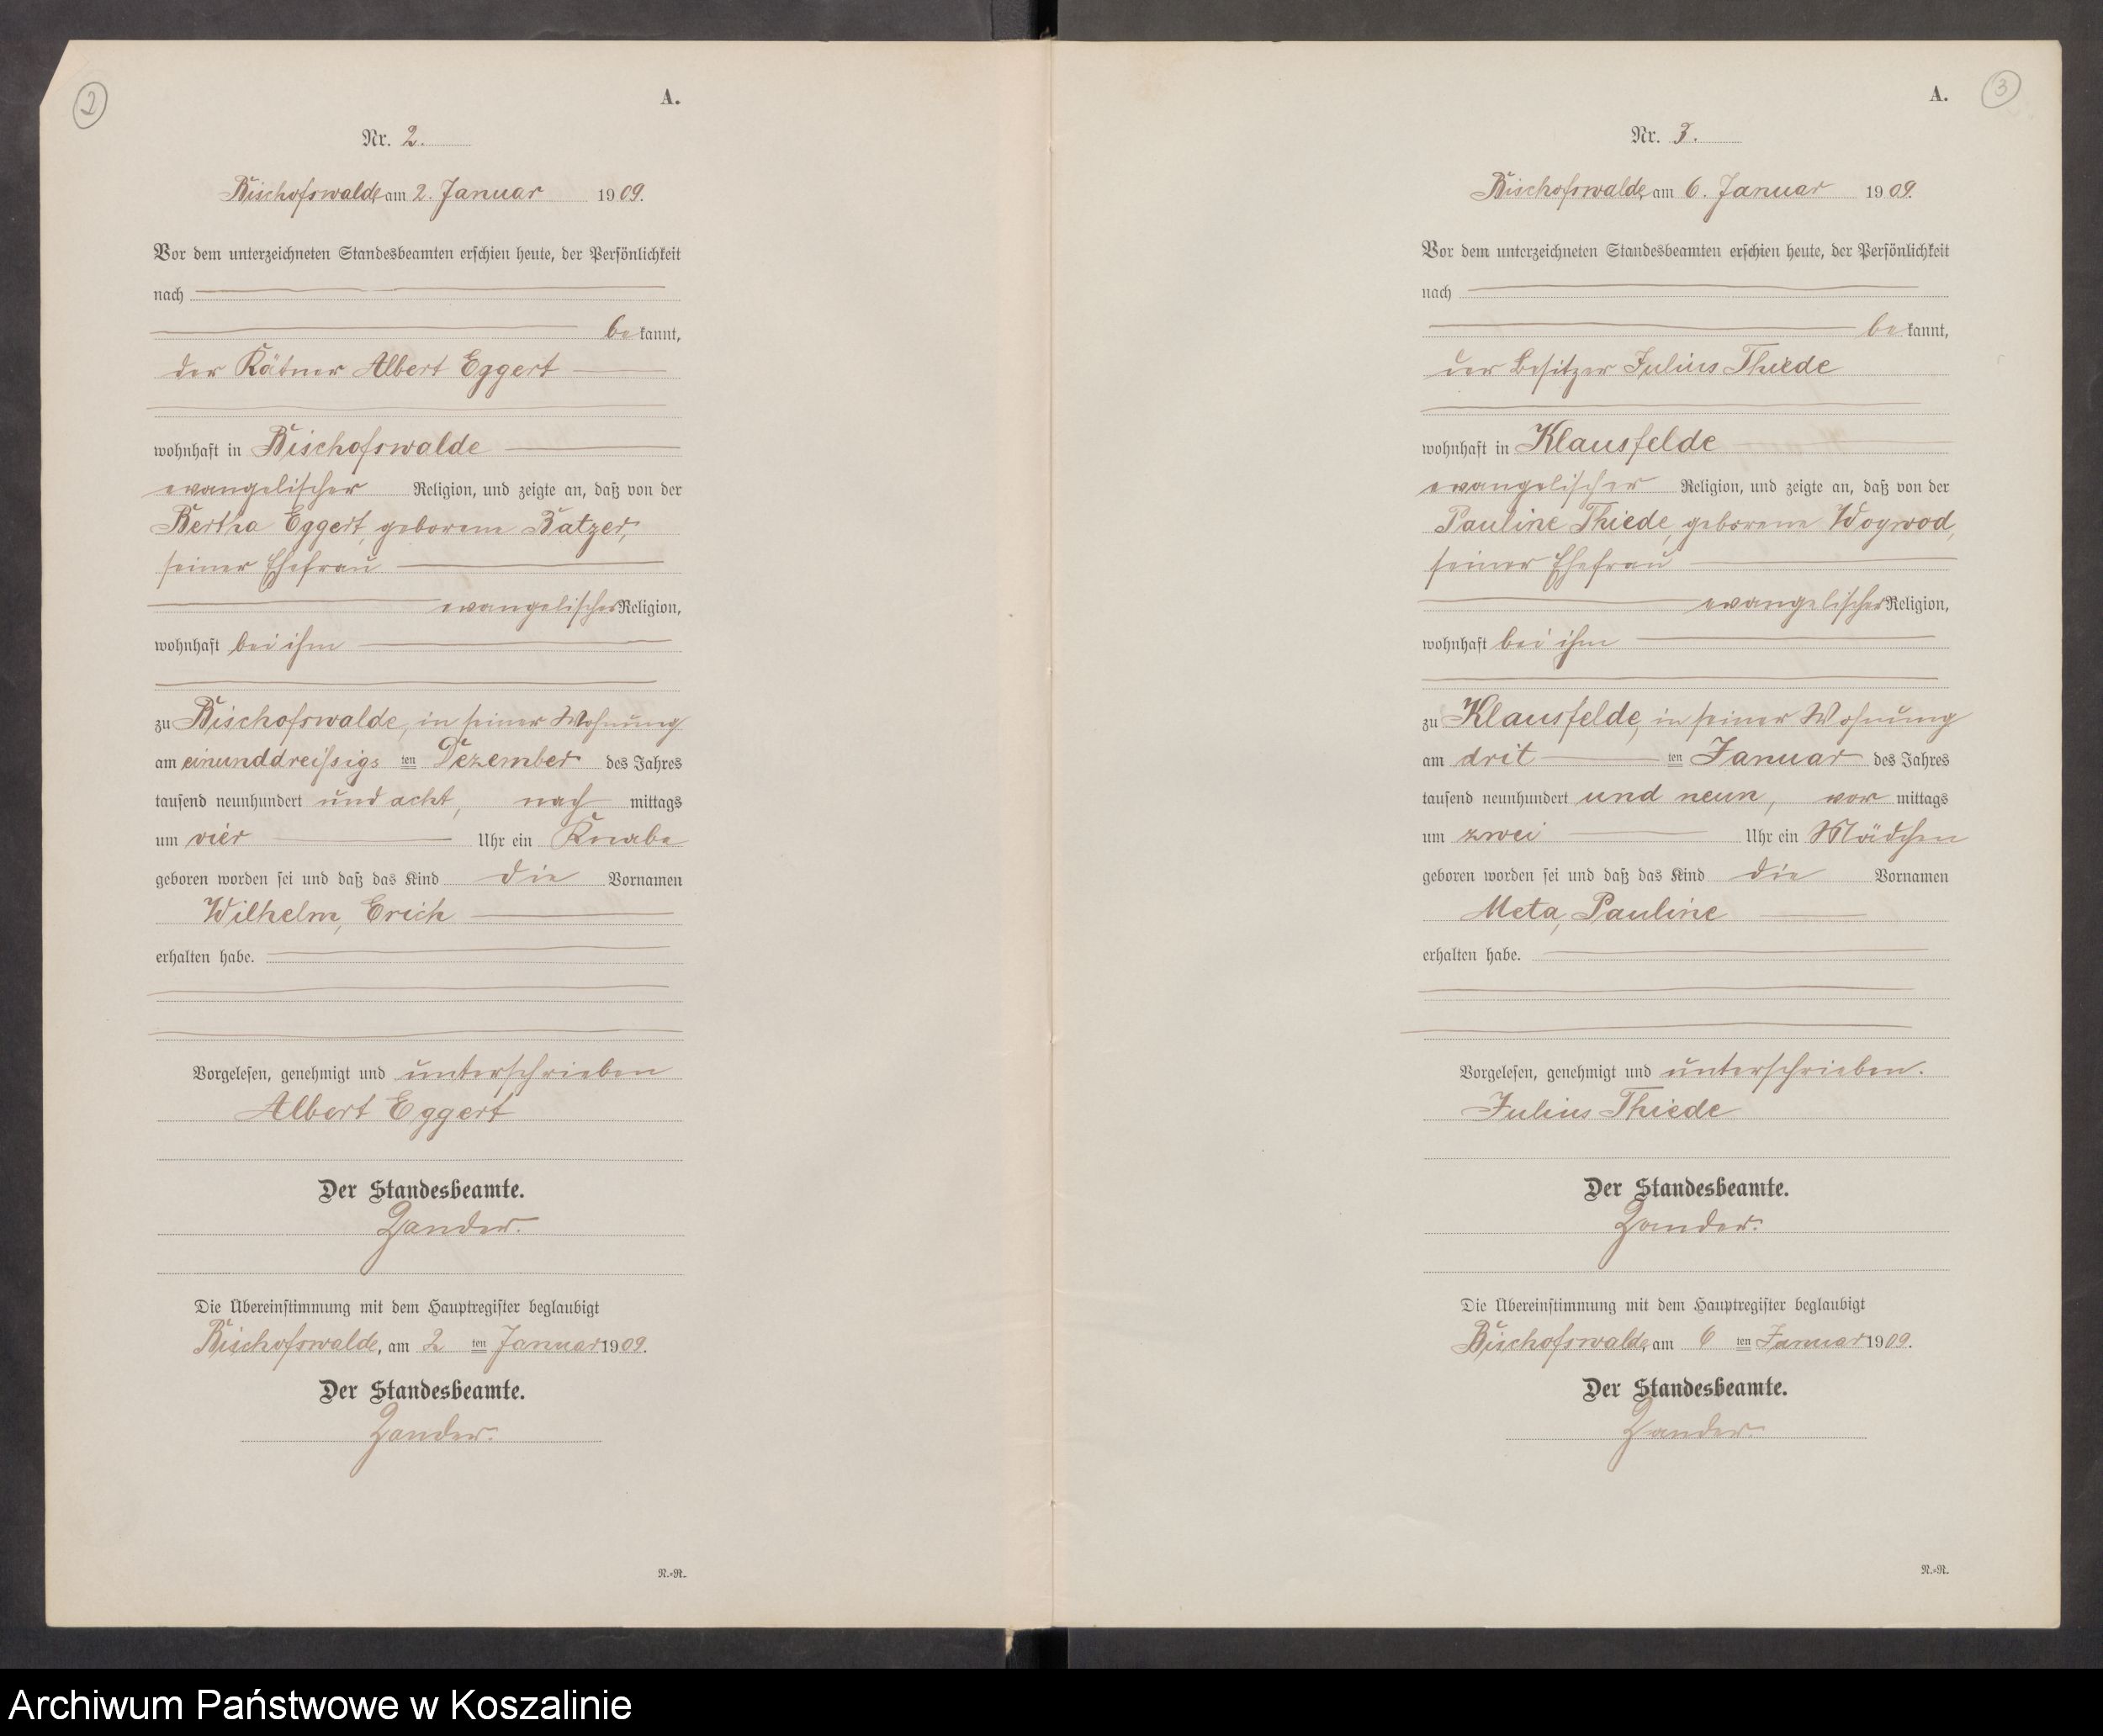 2
A.
Nr. 2.
Bischofswalde am 2. Januar 1909.
Vor dem unterzeichneten Standesbeamten erschien heute, der Persönlichkeit
nach
be kannt,
der Kätner Albert Eggert
wohnhaft in Bischofswalde
evangelischer Religion, und zeigte an, daß von der
Bertha Eggert, geborene Batzer,
seiner Ehefrau
evangelischer Religion,
wohnhaft bei ihm
zu Bischofswalde, in seiner Wohnung
am einunddreißigs ten Dezember des Jahres
tausend neunhundert und acht, nach mittags
um vier Uhr ein Knabe
geboren worden sei und daß das Kind die Vornamen
Wilhelm, Erich
erhalten habe.
Vorgelesen, genehmigt und unterschrieben
Albert Eggert
Der Standesbeamte.
Zander.
Die Übereinstimmung mit dem Hauptregister beglaubigt
Bischofswalde, am 2 ten Januar 1909.
Der Standesbeamte.
Zander.
N.=N.
3
A.
Nr. 3.
Bischofswalde, am 6. Januar 1909.
Vor dem unterzeichneten Standesbeamten erschien heute, der Persönlichkeit
nach
be kannt,
der Besitzer Julius Thiede
wohnhaft in Klausfelde
evangelischer Religion, und zeigte an, daß von der
Pauline Thiede, geborene Wogwod,
seiner Ehefrau
evangelischer Religion,
wohnhaft bei ihm
zu Klausfelde, in seiner Wohnung
am drit ten Januar des Jahres
tausend neunhundert und neun, vor mittags
um zwei Uhr ein Mädchen
geboren worden sei und daß das Kind die Vornamen
Meta, Pauline
erhalten habe.
Vorgelesen, genehmigt und unterschrieben.
Julius Thiede
Der Standesbeamte.
Zander.
Die Übereinstimmung mit dem Hauptregister beglaubigt
Bischofswalde, am 6 ten Januar 1909.
Der Standesbeamte.
Zander.
N.=N.
Archiwum Państwowe w Koszalinie